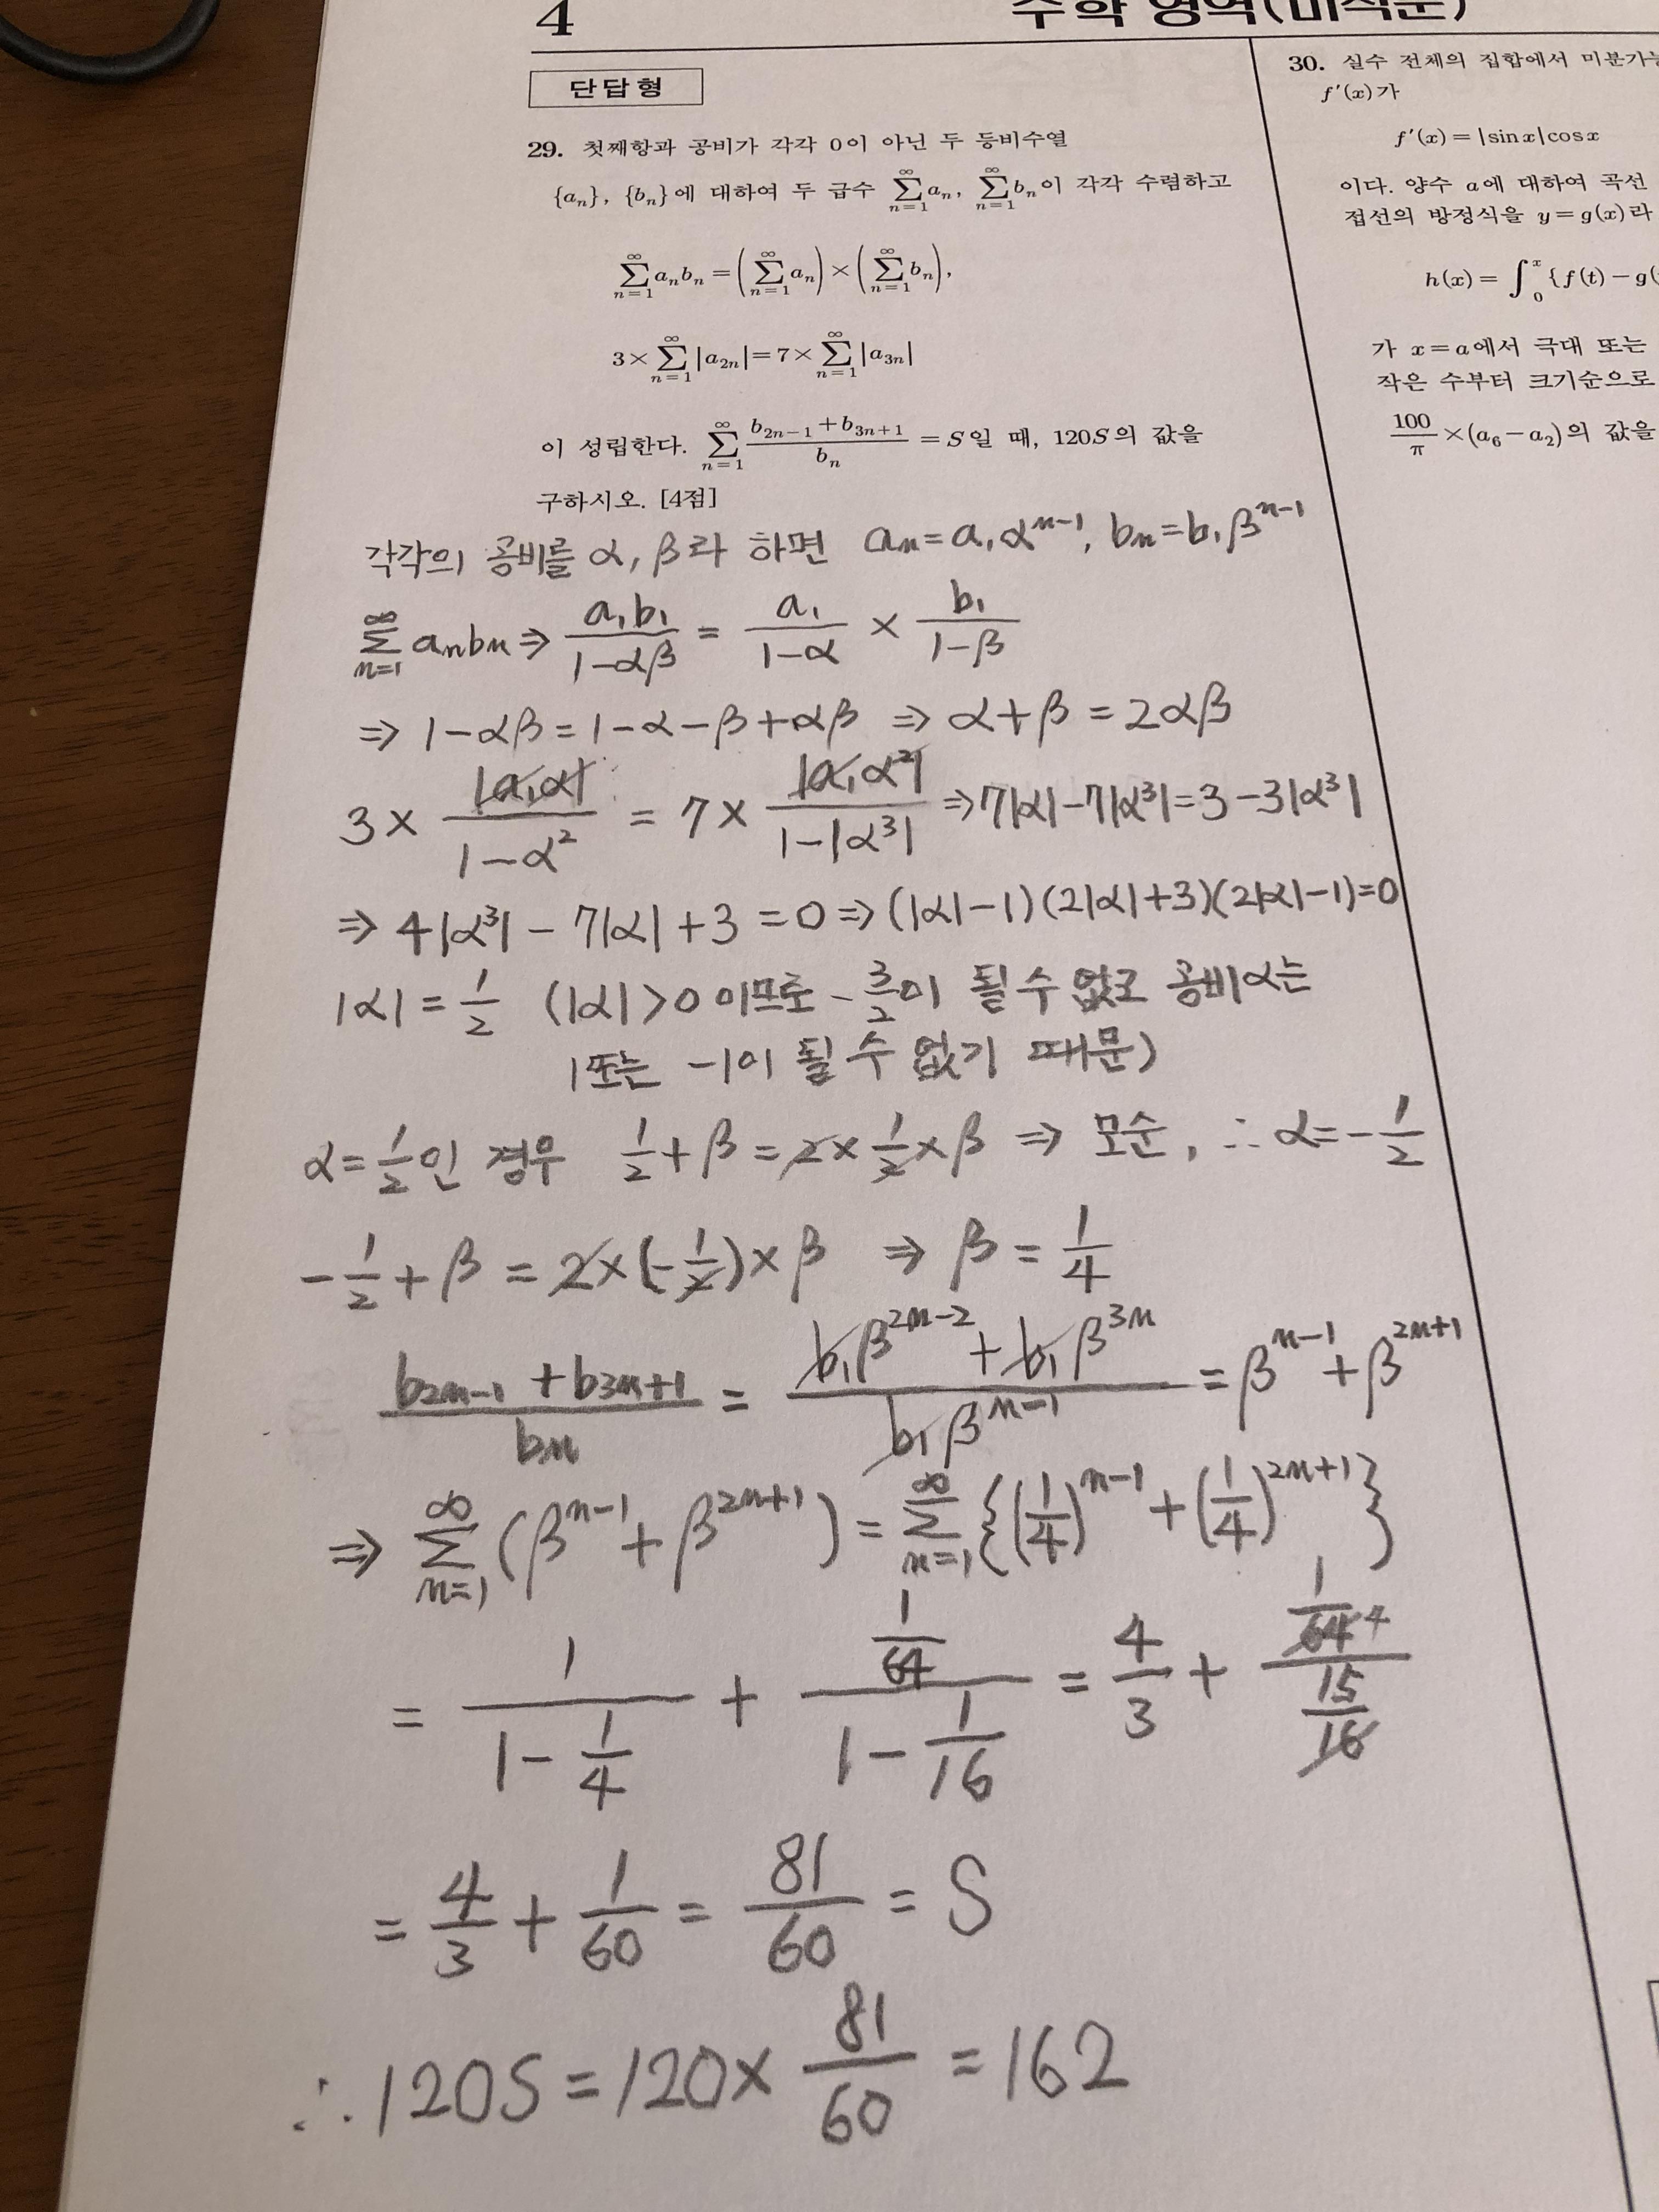 4
수학 영역(미적분)
단답형
29. 첫째항과 공비가 각각 0이 아닌 두 등비수열
{aₙ}, {bₙ}에 대하여 두 급수 ∑_{n=1}^{∞} aₙ, ∑_{n=1}^{∞} bₙ이 각각 수렴하고
∑_{n=1}^{∞} aₙbₙ = (∑_{n=1}^{∞} aₙ) × (∑_{n=1}^{∞} bₙ),
3 × ∑_{n=1}^{∞} |a_{2n}| = 7 × ∑_{n=1}^{∞} |a_{3n}|
이 성립한다. ∑_{n=1}^{∞} (b_{2n-1} + b_{3n+1})/bₙ = S일 때, 120S의 값을
구하시오. [4점]
각각의 공비를 α, β라 하면 aₙ = a₁α^{n-1}, bₙ = b₁β^{n-1}
∑_{n=1}^{∞} aₙbₙ ⇒ a₁b₁/(1-αβ) = a₁/(1-α) × b₁/(1-β)
⇒ 1-αβ = 1-α-β+αβ ⇒ α+β = 2αβ
3 × |a₁α|/(1-α²) = 7 × |a₁α²|/(1-|α³|) ⇒ 7|α| - 7|α³| = 3 - 3|α³|
⇒ 4|α³| - 7|α| + 3 = 0 ⇒ (|α|-1)(2|α|+3)(2|α|-1) = 0
|α| = 1/2 (|α| > 0 이므로 -3/2이 될 수 없고 공비 α는
1또는 -1이 될 수 없기 때문)
α = 1/2인 경우 1/2 + β = 2 × 1/2 × β ⇒ 모순, ∴ α = -1/2
-1/2 + β = 2 × (-1/2) × β ⇒ β = 1/4
(b_{2n-1} + b_{3n+1})/bₙ = (b₁β^{2n-2} + b₁β^{3n})/(b₁β^{n-1}) = β^{n-1} + β^{2n+1}
⇒ ∑_{n=1}^{∞} (β^{n-1} + β^{2n+1}) = ∑_{n=1}^{∞} {(1/4)^{n-1} + (1/4)^{2n+1}}
= 1/(1 - 1/4) + (1/64)/(1 - 1/16) = 4/3 + (1/64 4)/(15/16)
= 4/3 + 1/60 = 81/60 = S
∴ 120S = 120 × 81/60 = 162
30. 실수 전체의 집합에서 미분가능
f'(x)가
f'(x) = |sinx|cosx
이다. 양수 a에 대하여 곡선
접선의 방정식을 y = g(x)라
h(x) = ∫_{0}^{x} {f(t) - g(
가 x = a에서 극대 또는
작은 수부터 크기순으로
100/π × (a₆ - a₂)의 값을